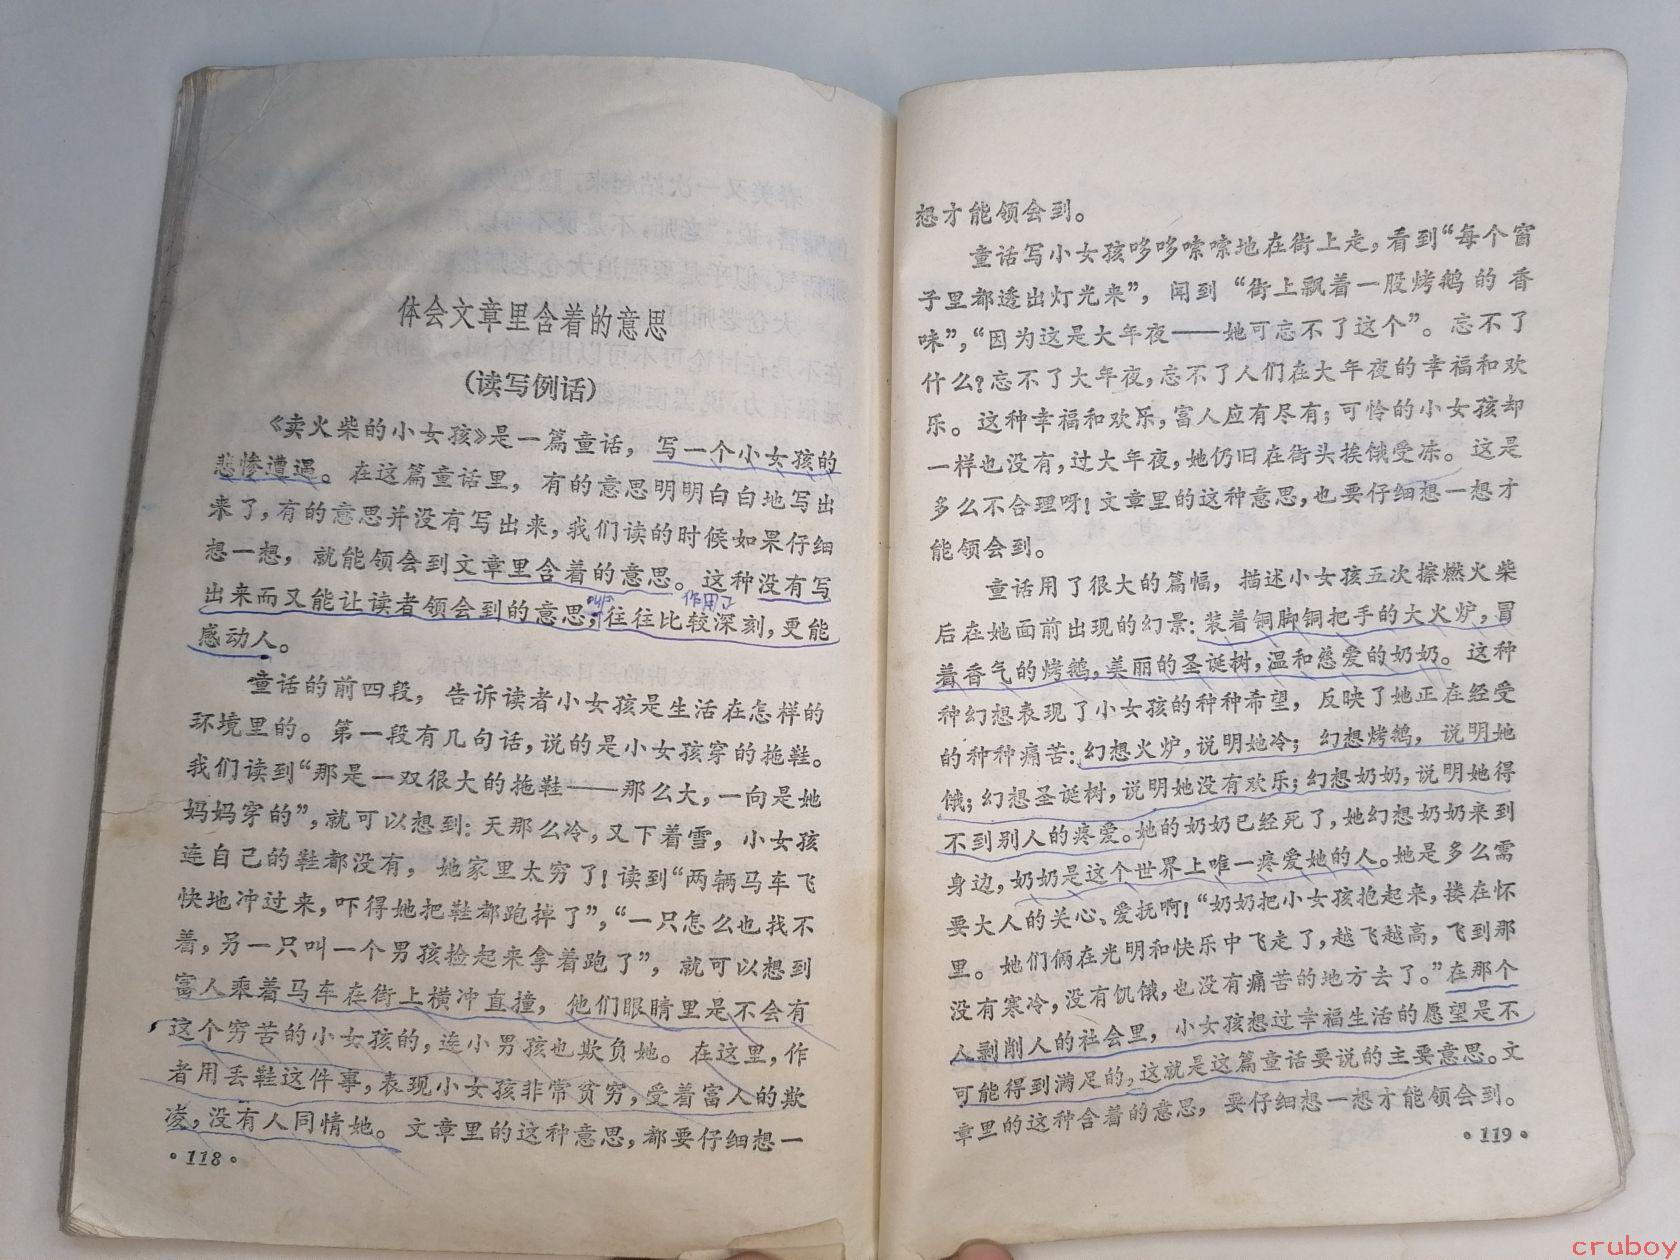 体会文章里含着的意思
(读写例话)
《卖火柴的小女孩》是一篇童话，写一个小女孩的
悲惨遭遇。在这篇童话里，有的意思明明白白地写出
来了，有的意思并没有写出来，我们读的时候如果仔细
想一想，就能领会到文章里含着的意思。这种没有写
叫 作用了
出来而又能让读者领会到的意思，往往比较深刻，更能
感动人。
童话的前四段，告诉读者小女孩是生活在怎样的
环境里的。第一段有几句话，说的是小女孩穿的拖鞋。
我们读到“那是一双很大的拖鞋——那么大，一向是她
妈妈穿的”，就可以想到：天那么冷，又下着雪，小女孩
连自己的鞋都没有，她家里太穷了！读到“两辆马车飞
快地冲过来，吓得她把鞋都跑掉了”，“一只怎么也找不
着，另一只叫一个男孩捡起来拿着跑了”，就可以想到
富人乘着马车在街上横冲直撞，他们眼睛里是不会有
这个穷苦的小女孩的，连小男孩也欺负她。在这里，作
者用丢鞋这件事，表现小女孩非常贫穷，受着富人的欺
凌，没有人同情她。文章里的这种意思，都要仔细想一
·118·
想才能领会到。
童话写小女孩哆哆嗦嗦地在街上走，看到“每个窗
子里都透出灯光来”，闻到“街上飘着一股烤鹅的香
味”，“因为这是大年夜——她可忘不了这个”。忘不了
什么？忘不了大年夜，忘不了人们在大年夜的幸福和欢
乐。这种幸福和欢乐，富人应有尽有；可怜的小女孩却
一样也没有，过大年夜，她仍旧在街头挨饿受冻。这是
多么不合理呀！文章里的这种意思，也要仔细想一想才
能领会到。
童话用了很大的篇幅，描述小女孩五次擦燃火柴
后在她面前出现的幻景：装着铜脚铜把手的大火炉，冒
着香气的烤鹅，美丽的圣诞树，温和慈爱的奶奶。这种
种幻想表现了小女孩的种种希望，反映了她正在经受
的种种痛苦：幻想火炉，说明她冷；幻想烤鹅，说明她
饿；幻想圣诞树，说明她没有欢乐；幻想奶奶，说明她得
不到别人的疼爱。她的奶奶已经死了，她幻想奶奶来到
身边，奶奶是这个世界上唯一疼爱她的人。她是多么需
要大人的关心、爱抚啊！“奶奶把小女孩抱起来，搂在怀
里。她们俩在光明和快乐中飞走了，越飞越高，飞到那
没有寒冷，没有饥饿，也没有痛苦的地方去了。”在那个
人剥削人的社会里，小女孩想过幸福生活的愿望是不
可能得到满足的，这就是这篇童话要说的主要意思。文
章里的这种含着的意思，要仔细想一想才能领会到。
·119·
cruboy